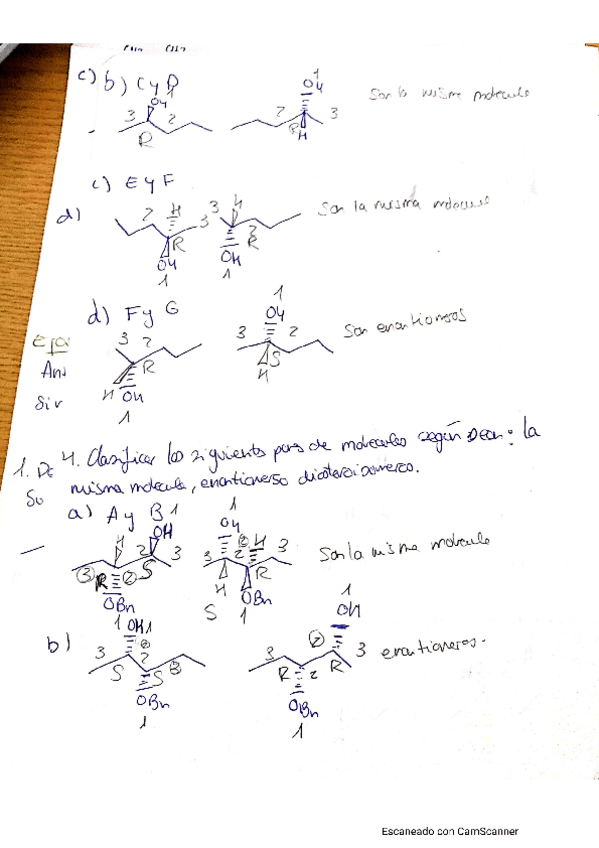 c) b) C y D
Son la misma molecula
OH 1
3 2
R
1
OH
2 3
R
H
c) E y F
d)
Son la misma molecula
2 H 3
R
OH
1
3 H
2
OH R
1
d) F y G
Son enantiomeros
3 2
R
H OH
1
1
OH
3 2
S
H
An
Sir
4. Clasificar los siguientes pares de moleculas según sean: la
1. De
misma molecula, enantiomero diastereoisomero.
Su
a) A y B
Son la misma molecula
1
OH
H 2 3
3 R 2 S
OBn
1
1
OH
3 2 2 H 3
H R
OBn
S 1
b)
enantiomeros.
1 OH 1
3 2 2
S S 3
OBn
1
1
OH
2
3 3
R 2 R
OBn
1
Escaneado con CamScanner